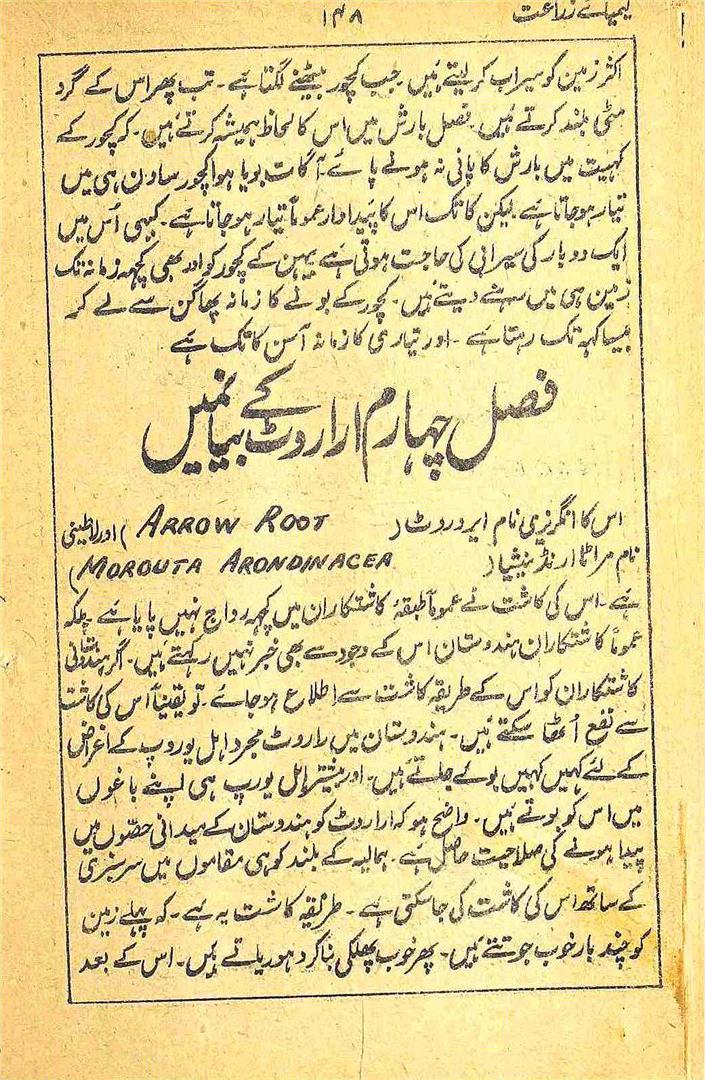 کیمیائے زراعت
۱۴۸
اکثر زمین کو سیراب کر لیتے ہیں۔ جب کچور بیٹھنے لگتا ہے۔ تب پھر اس کے گرد
مٹی بلند کرتے ہیں۔ فصل بارش میں اس کا لحاظ ہمیشہ کرتے ہیں۔ کہ کچور کے
کہیت میں بارش کا پانی نہ ہونے پائے۔ آگات بویا ہوا کچور ساون ہی میں
تیار ہو جاتا ہے لیکن کاتک اس کا پیداوار عموماً تیار ہو جاتا ہے۔ کبہی اُس میں
ایک دو بار کی سیرابی کی حاجت ہوتی ہے بیہن کے کچور کو اور بھی کچہہ زمانہ تک
زمین ہی میں رہنے دیتے ہیں۔ کچور کے بونے کا زمانہ پھاگن سے لے کر
بیساکہہ تک رہتا ہے۔ اور تیاری کا زمانہ آسن کاتک ہے
فصل چہارم اراروٹ کے بیانمیں
اس کا انگریزی نام ایروروٹ (ARROW ROOT) اور لاطینی
نام مراٹا ارنڈینیشیا (MOROUTA ARONDINACEA)
ہے۔ اس کی کاشت نے عموماً طبقۂ کاشتکاران میں کچہہ رواج نہیں پایا ہے بلکہ
عموماً کاشتکاران ہندوستان اس کے وجود سے بھی خبر نہیں رکہتے ہیں۔ اگر ہندوستانی
کاشتکاران کو اس کے طریقہ کاشت سے اطلاع ہو جائے۔ تو یقیناً اس کی کاشت
سے نفع اُٹھا سکتے ہیں۔ ہندوستان میں راروٹ مجرد اہل یوروپ کے اغراض
کے لئے کہیں کہیں بوئے جاتے ہیں۔ اور بیشتر اہل یورپ ہی اپنے باغوں
میں اس کو بوتے ہیں۔ واضح ہو کہ اراروٹ کو ہندوستان کے میدانی حصّوں میں
پیدا ہونے کی صلاحیت حاصل ہے۔ ہمالیہ کے بلند کوہی مقاموں میں سرسبزی
کے ساتھ اس کی کاشت کی جا سکتی ہے۔ طریقہ کاشت یہ ہے۔ کہ پہلے زمین
کو چند بار خوب جوتتے ہیں۔ پھر خوب پھلکی بنا کر دہوریاتے ہیں۔ اس کے بعد